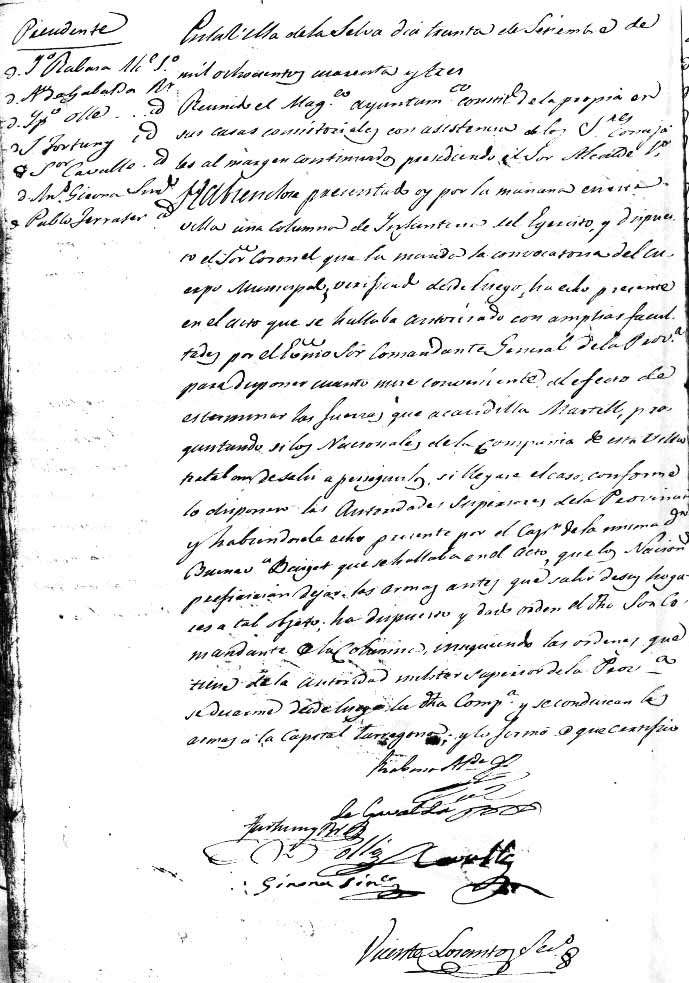 Precidente
D. Jº Rabasa Alcᵉ 1.º
D. Nº de Gabalda Rr
D. Jpº Olle ... id
D. J. Fortuny id
D. Cavalle . id
D. Anº Girona Sindº
D. Pablo Ferrater id
En la Villa de la Selva dia treinta de Setiembre de
mil ochocientos cuarenta y tres
Reunido el Magᶜᵒ ayuntamᵗᵒ constitˡ de la propia en
sus casas consistoriales con asistencia de los Sʳᵉˢ Conceja
les al margen continuados presidiendo el Sor Alcalde 1º
Habiendose presentado oy por la mañana en esta
villa una columna de Infanteria del Ejercito, y dispues
to el Sor Coronel que la manda la convocatoria del Cu
erpo Municipal, verificada desde luego, ha echo presente
en el acto que se hallaba autorizado con amplias facul
tades por el Exmo Sor Comandante General de la Provᵃ
para disponer cuanto mire conveniente al efecto de
esterminar las fuerzas que acaudilla Martell, pre
guntando, si los Nacionales de la Compañia de esta Villa
tratavan de salir a perseguirlos, si llegase el caso, conforme
lo disponen las Autoridades Superiores de la Provincia
y habiendosele echo presente por el Capⁿ de la misma Dⁿ
Buenavᵃ Baiget que se hallaba en el Acto, que los Nacion
preficirian dejar las armas antes que salir de sus hoga
res a tal objeto, ha dispuesto y dado orden el dho Sor Co
mandante de la Columna, insiguiendo las ordenes que
tiene de la autoridad militar superior de la Provᵃ
se desarme desde luego la dha Compᵃ y se conduscan las
armas a la Capital Tarragona, y lo firmó de que certifico
Rabasa Alde
de Gavalda
Fortuny Rr
Olle Cavalle
Girona Sinco
Vicente Lorenzo, Secº